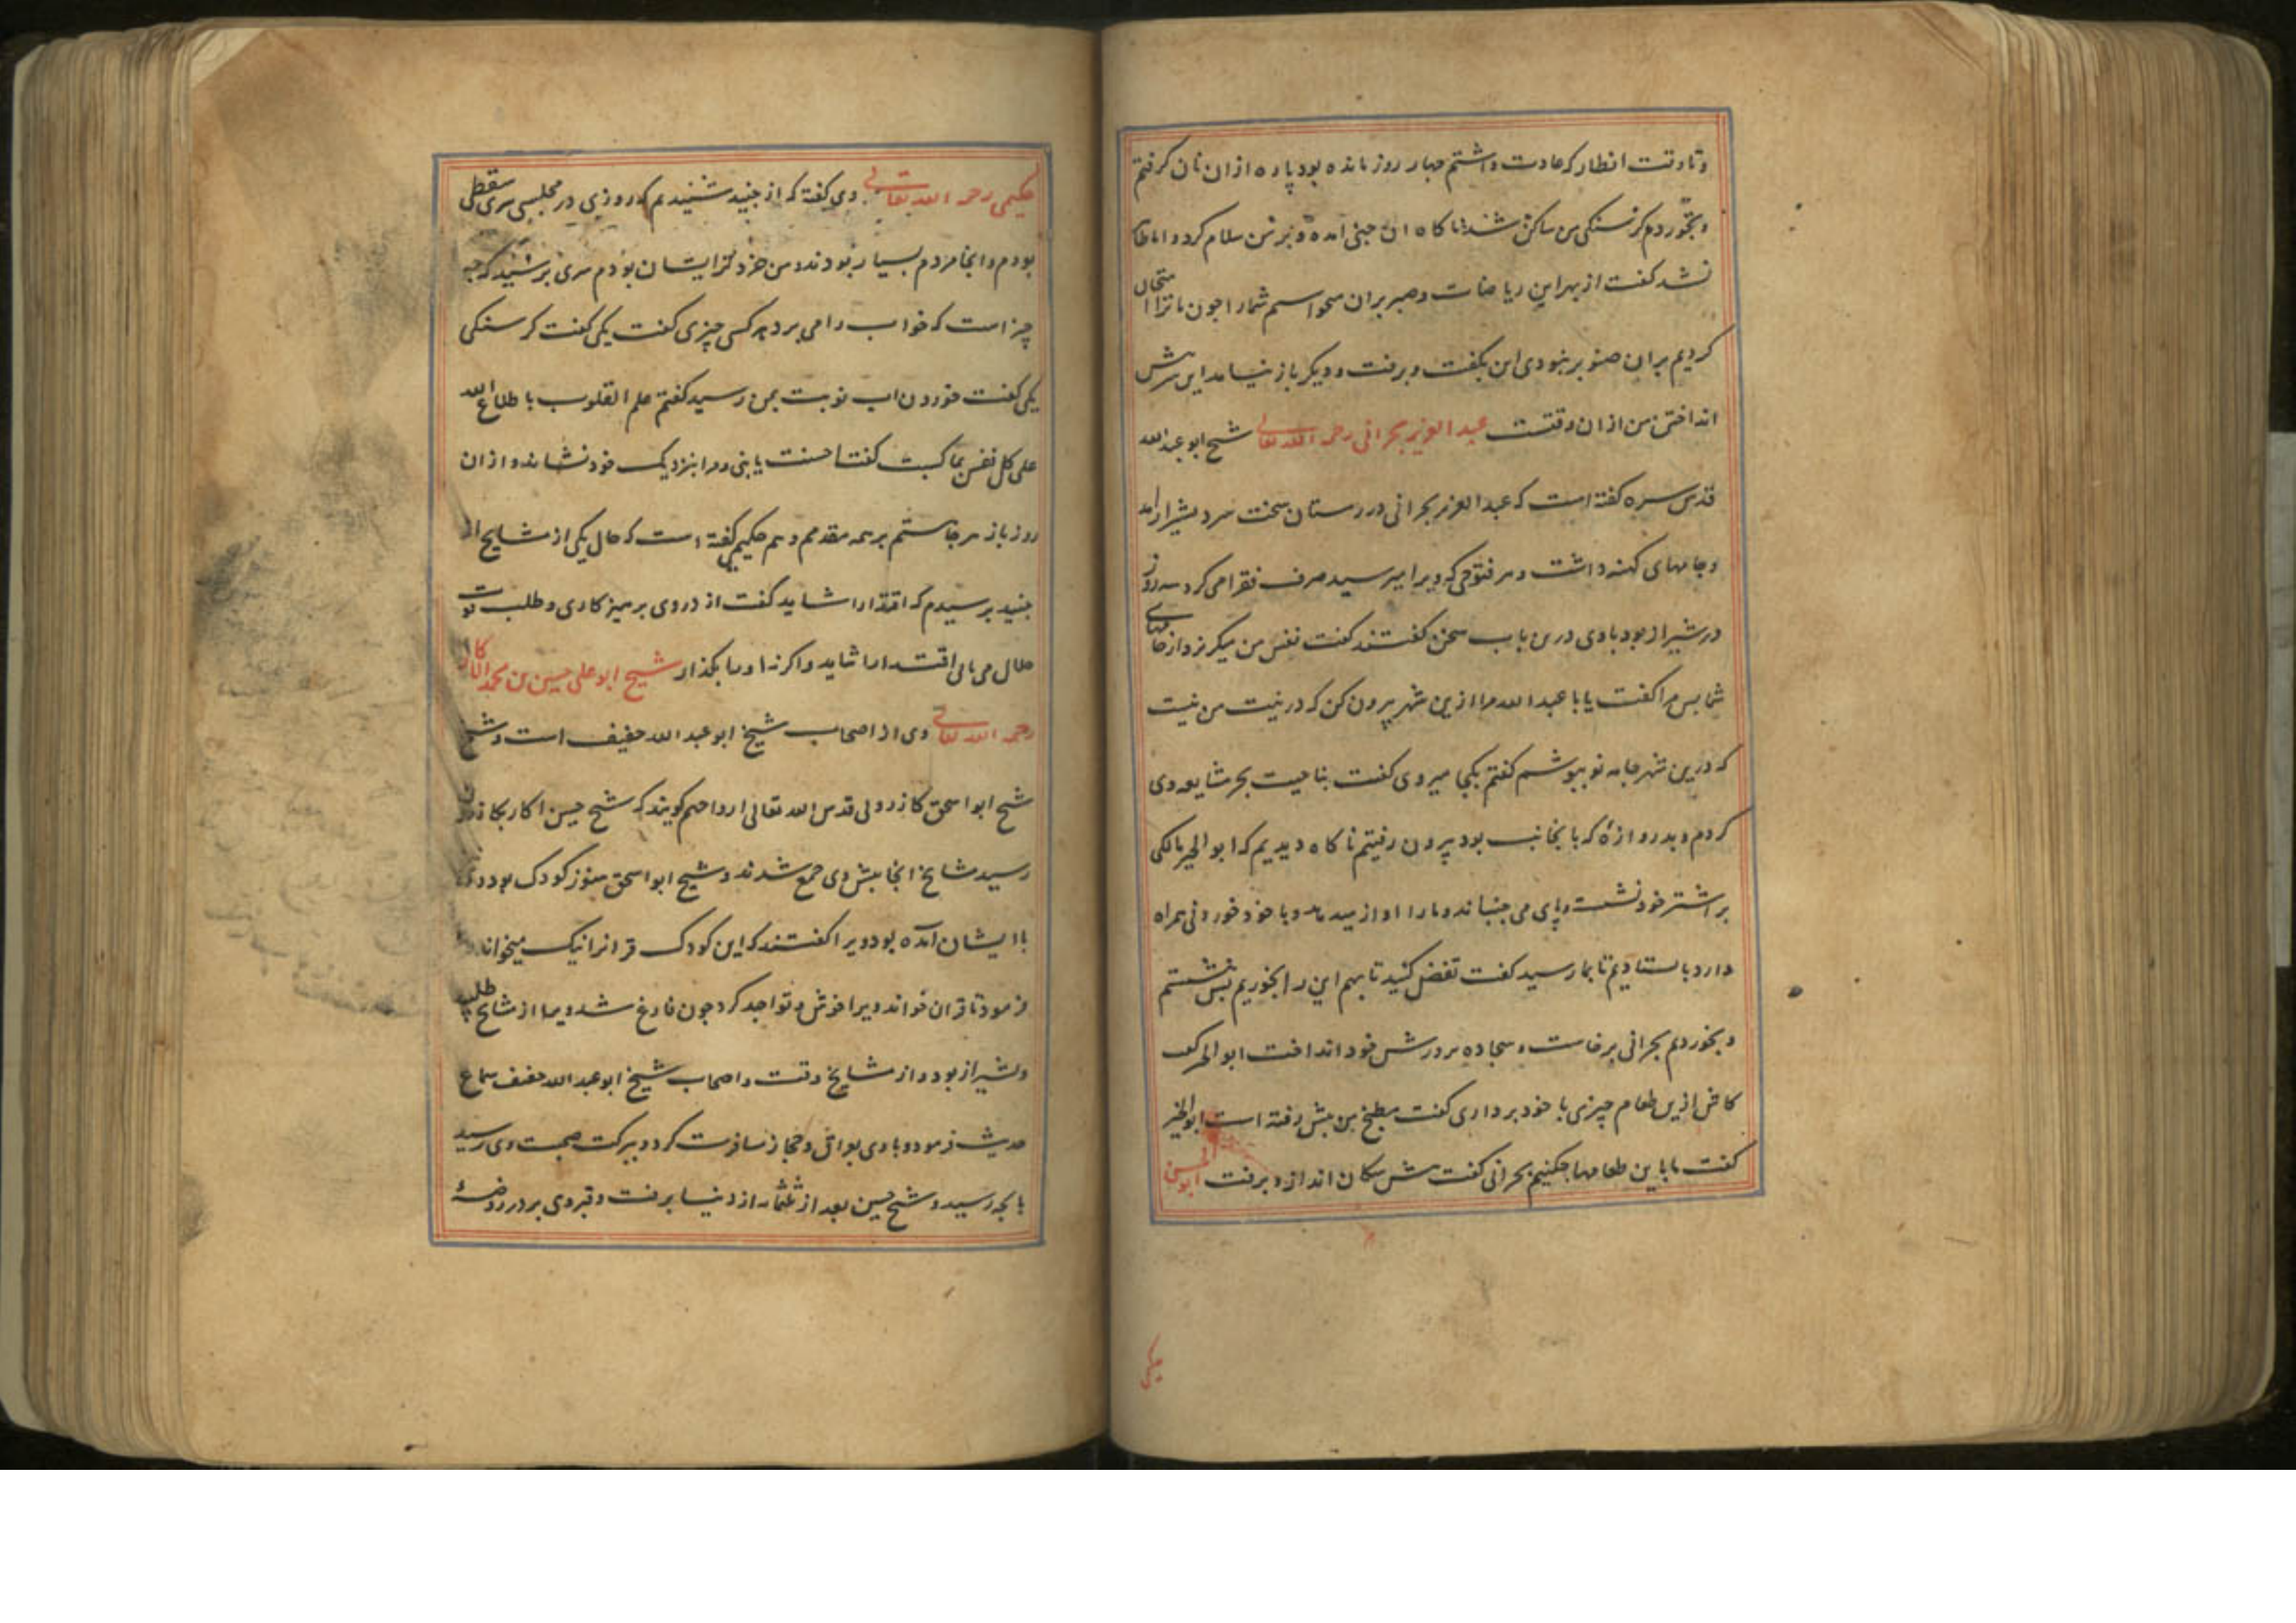 وتا وقت افطار که عادت داشتم چهار روز مانده بود پاره ازان نان کرفتم
وبخوردم کرسنکی من ساکن شد ناکاه ان جنی آمد و بر من سلام کرد و اما ظاهر
نشد کفت از بهر این ریاضات و صبر بران میخواستم شمارا چون ما ترا امتحان
کردیم بران صبر نبودی این بکفت و برفت و دیکر باز نیامد این سرپیش
انداختن من ازان وقتست عبد العزیز بحرانی رحمه الله تعالی شیخ ابو عبد الله
قدس سره کفته است که عبد العزیز بحرانی در زمستان سخت سرد بشیراز آمد
وجامهای کهنه داشت و هر فتوحی که ویرا میرسید صرف فقرا می کرد سه روز
در شیراز بود با وی درین باب سخن کفتند کفت نفس من میکریزد از جامهای
شما پس مرا کفت یا با عبد الله مرا ازین شهر بیرون کن که در نیت من نیست
که درین شهر جامه نو بپوشم کفتم بکجا میروی کفت بناحیت بحر مشایعه وی
کردم و بدروازهٔ که بانجانب بود بیرون رفتیم ناکاه دیدیم که ابو الخیر مالکی
بر اشتر خود نشسته و پای می جنباند و مارا اواز میدهد و با خود خوردنی همراه
دارد باستادیم تا بما رسید کفت تفضل کنید تا بهم این را بخوریم بنشستیم
و بخوردیم بحرانی برخاست و سجاده بر دوش خود انداخت ابو الخیر کفت
کاش ازین طعام چیزی با خود برداری کفت مطبخ من پیش رفته است ابو الخیر
کفت با این طعامها چکنیم بحرانی کفت پیش سکان انداز و برفت ابو الحسن
حکیمی
حکیمی رحمه الله تعالی وی کفته که از جنید شنیدم که روزی در مجلس سری سقطی
بودم و انجا مردم بسیار بودند و من خردتر ایشان بودم سری پرسید که چه
چیز است که خواب را می برد هر کسی چیزی کفت یکی کفت کرسنکی
یکی کفت خوردن اب نوبت بمن رسید کفتم علم القلوب باطلاع الله
علی کل نفس بما کسبت کفت احسنت یا بنی و مرا بنزدیک خود نشاند و ازان
روز باز هر جا هستم بر همه مقدمم و هم حکیمی کفته است که حال یکی از مشایخ از
جنید پرسیدم که اقتدا را شاید کفت از در وی پرهیزکاری و طلب قوت
حلال می یابی اقتدا را شاید و اکر نه او را بکذار شیخ ابو علی حسین بن محمد الاکار
رحمه الله تعالی وی از اصحاب شیخ ابو عبد الله خفیف است و شیخ
شیخ ابو اسحق کازرونی قدس الله تعالی ارواحهم کویند که شیخ حسین اکار بکازرون
رسید مشایخ انجا پیش وی جمع شدند و شیخ ابو اسحق هنوز کودک بود و وی
با ایشان آمده بود ویرا کفتند که این کودک قرانرا نیک میخواند
فرمود تا قران خواند ویرا خوش و تواجد کرد چون فارغ شد ویرا از مشایخ طلبید
و بشیراز بود و از مشایخ وقت و اصحاب شیخ ابو عبد الله خفیف سماع
حدیث فرمود و با وی بعراق و حجاز مسافرت کرد و ببرکت صحبت وی رسید
بانچه رسید و شیخ حسین بعد از ثلثمایه از دنیا برفت و قبر وی بر در روضهٔ